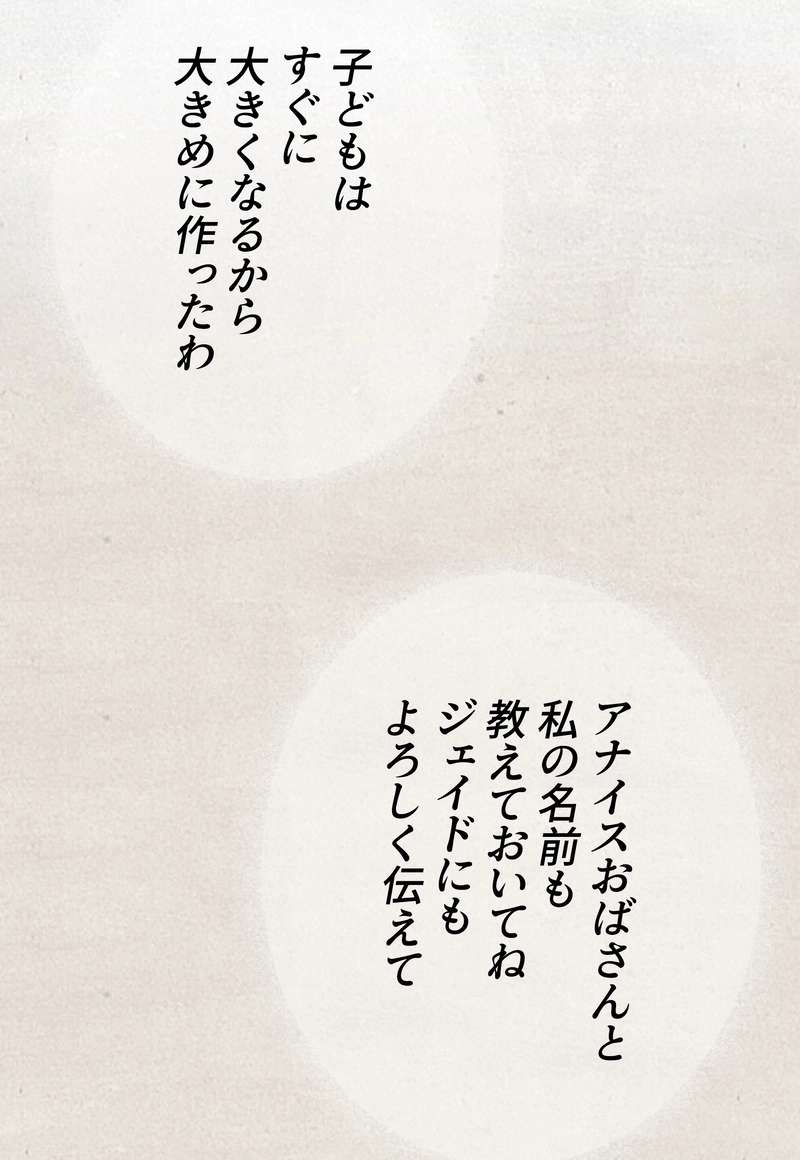 子どもは
すぐに
大きくなるから
大きめに作ったわ
アナイスおばさんと
私の名前も
教えておいてね
ジェイドにも
よろしく伝えて